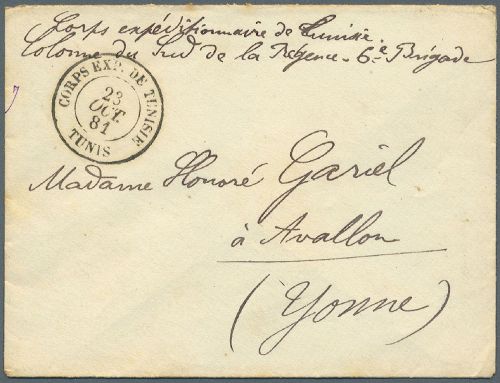 Corps expéditionnaire de Tunisie
Colonne du Sud de la Régence - 6e Brigade
CORPS EXP. DE TUNISIE
23
OCT.
81
TUNIS
Madame Honoré Gariel
à Avallon
(Yonne)